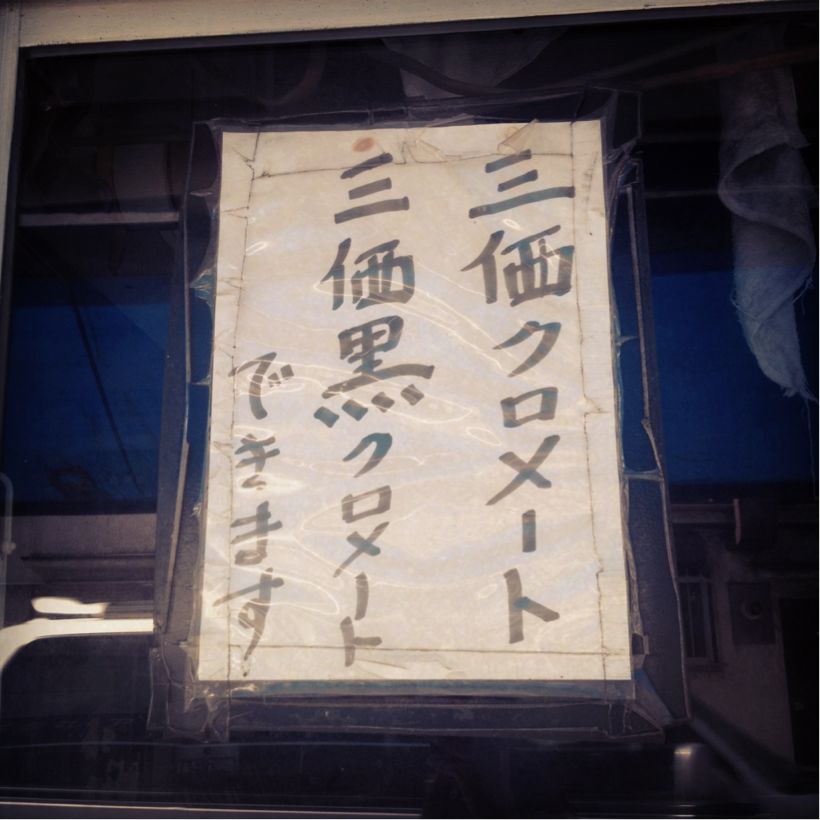 三価クロメート
三価黒クロメート
できます